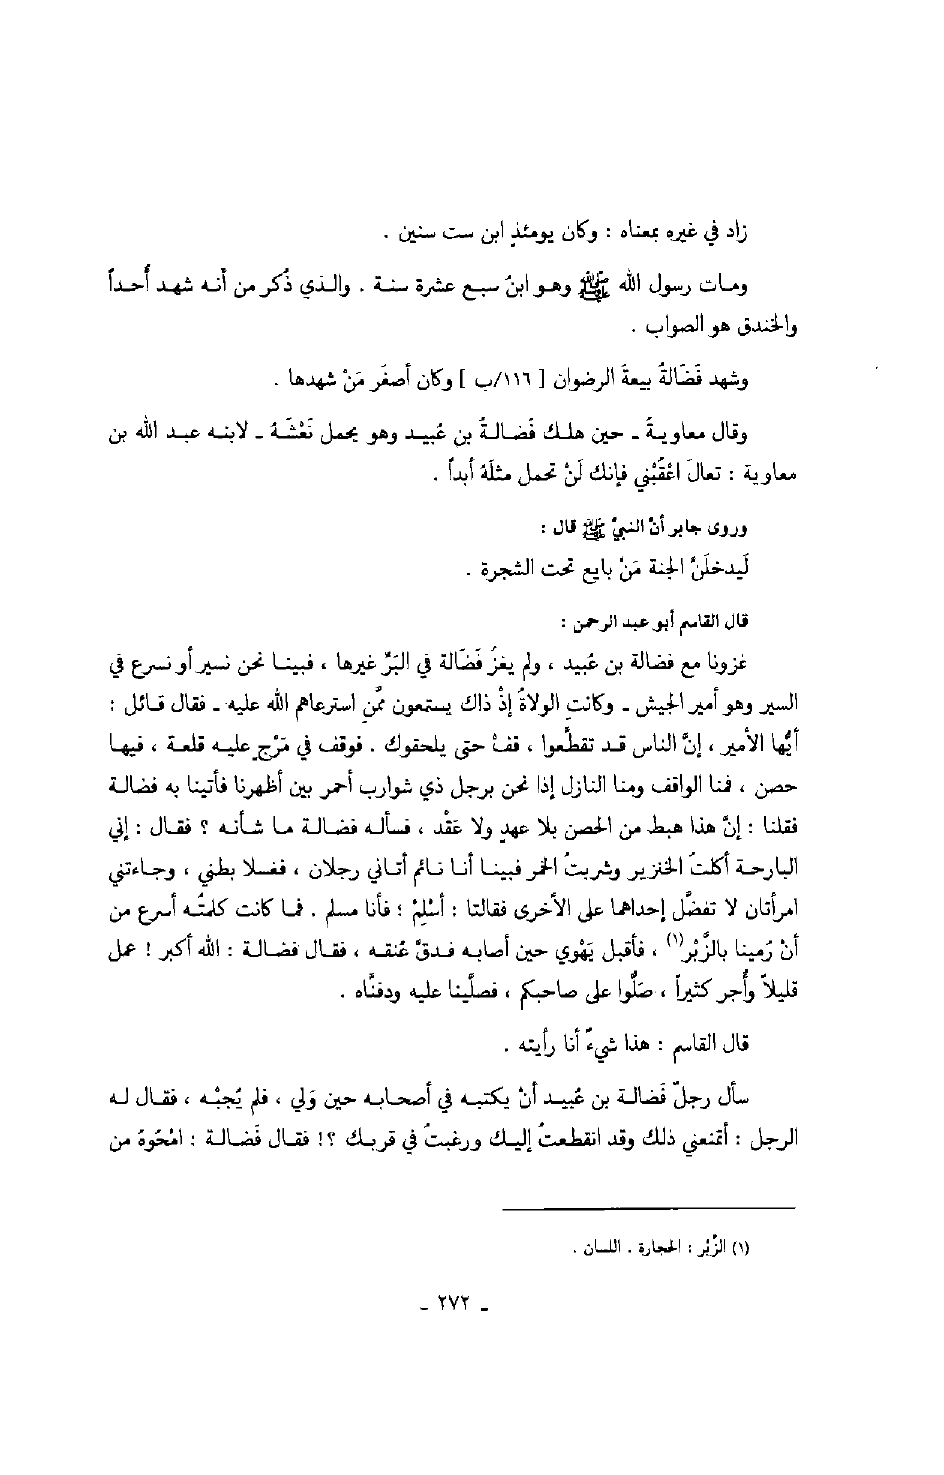 زاد في غيره بمعناه : وكان يومئذٍ ابن ست سنين .
ومات رسول الله ﷺ وهو ابنُ سبع عشرة سنة . والذي ذُكر من أنه شهد أُحداً
والخندق هو الصواب .
وشهد فَضَالةُ بيعةَ الرضوان [ ١١٦/ب ] وكان أصغَر مَنْ شهدها .
وقال معاويةُ ـ حين هلك فَضالةُ بن عُبيد وهو يحمل نَعْشَهُ ـ لابنه عبد الله بن
معاوية : تعالَ اعْقُبْني فإنك لَنْ تحمل مثلَهُ أبداً .
وروى جابر أنّ النبيّ ﷺ قال :
لَيدخلَنَّ الجنة مَنْ بايع تحت الشجرة .
قال القاسم أبو عبد الرحمن :
غزونا مع فضالة بن عُبيد ، ولم يغزُ فَضَالة في البَرِّ غيرها ، فبينا نحن نسير أو نسرع في
السير وهو أمير الجيش ـ وكانتِ الولاةُ إذْ ذاك يستمعون ممَّنِ استرعاهم الله عليه ـ فقال قائل :
أيُّها الأمير ، إنَّ الناس قد تقطَّعوا ، قفْ حتى يلحقوك . فوقف في مَرْجٍ عليه قلعة ، فيها
حصن ، فمنا الواقف ومنا النازل إذا نحن برجل ذي شوارب أحمر بين أظهرنا فأتينا به فضالة
فقلنا : إنَّ هذا هبط من الحصن بلا عهدٍ ولا عَقْد ، فسأله فضالة ما شأنه ؟ فقال : إني
البارحة أكلتُ الخنزير وشربتُ الخمر فبينا أنا نائم أتاني رجلان ، فغسلا بطني ، وجاءتني
امرأتان لا تفضُل إحداهما على الأخرى فقالتا : أسْلِمْ ؛ فأنا مسلم . فما كانت كلمتُه أسرع من
أنْ رُمينا بالزَّبْر(١) ، فأقبل يَهْوي حين أصابه فدقَّ عُنقه ، فقال فضالة : الله أكبر ! عمل
قليلاً وأُجر كثيراً ، صَلُّوا على صاحبكم ، فصلَّينا عليه ودفنَّاه .
قال القاسم : هذا شيءٌ أنا رأيته .
سأل رجلٌ فَضالة بن عُبيد أنْ يكتبه في أصحابه حين وَلي ، فلم يُجبْه ، فقال له
الرجل : أتمنعني ذلك وقد انقطعتُ إليك ورغبتُ في قربك ؟! فقال فَضالة : امْحُوهُ من
(١) الزَّبْر : الحجارة . اللسان .
ـ ٢٧٢ ـ